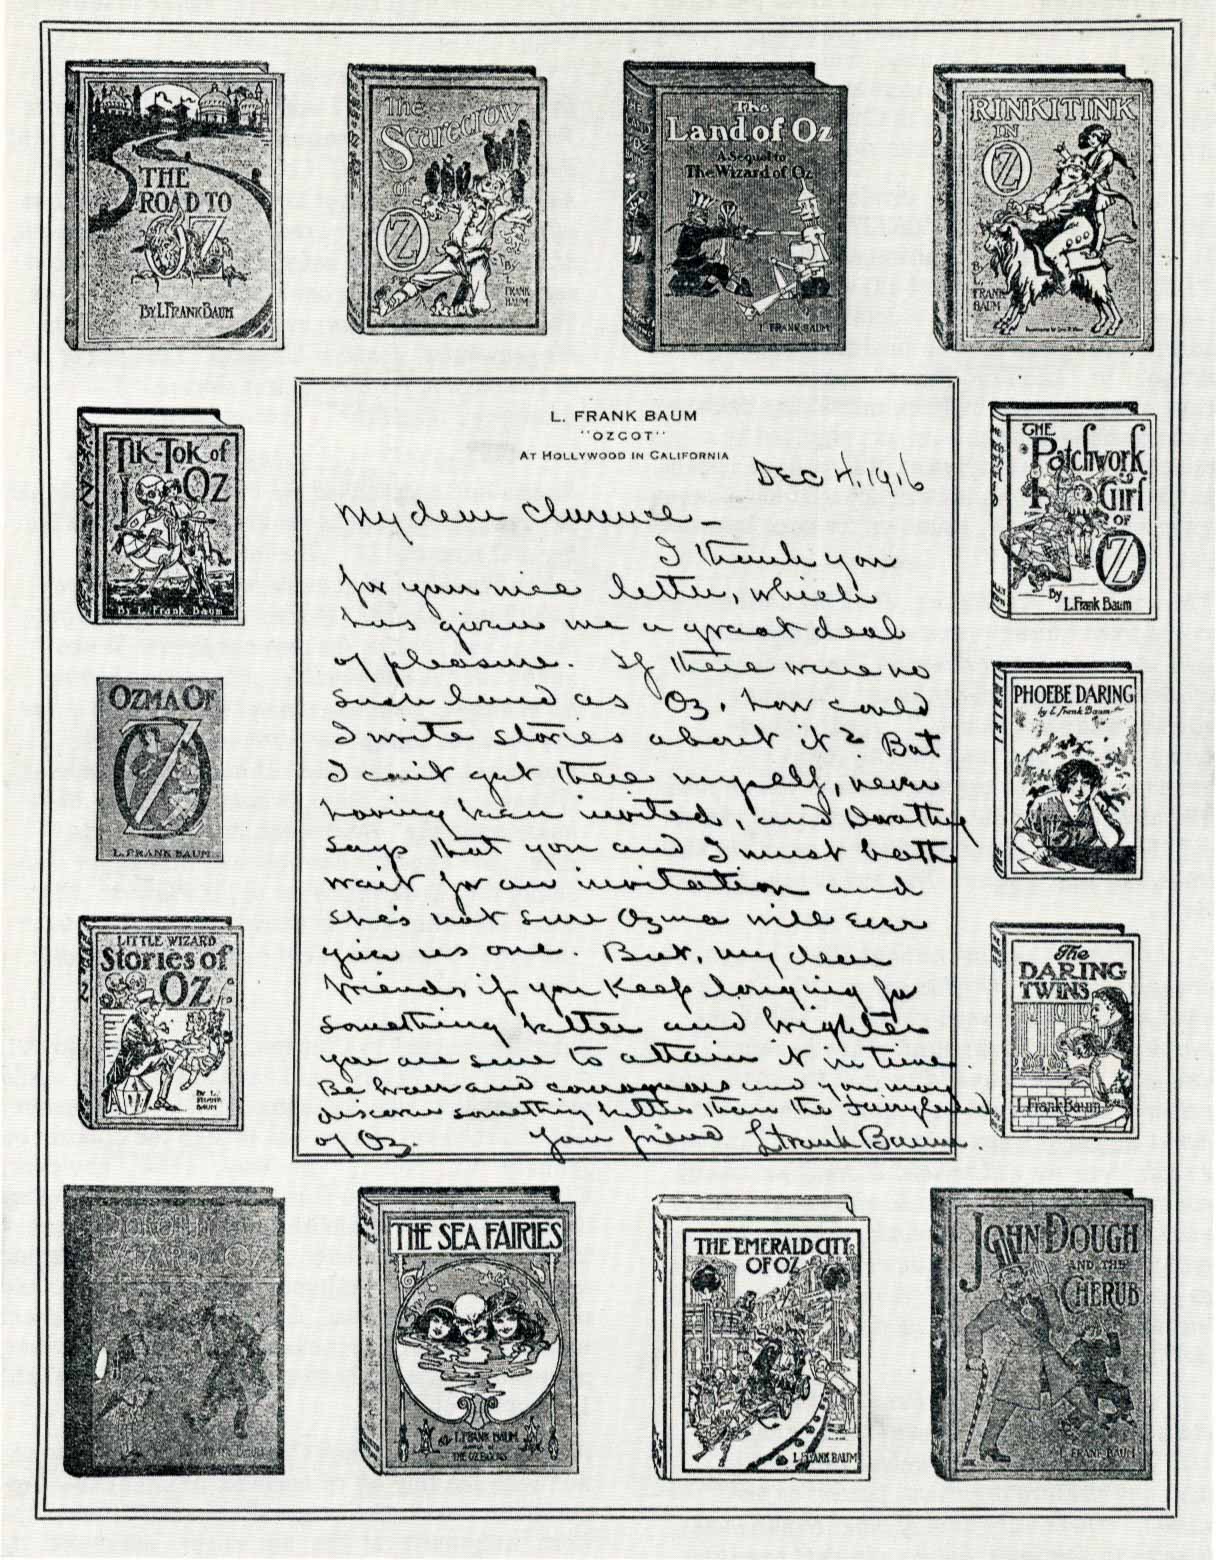 THE
ROAD TO
OZ
BY L. FRANK BAUM
The
Scarecrow
of
OZ
By
L.
FRANK
BAUM
The
Land of Oz
A Sequel to
The Wizard of Oz
L. FRANK BAUM
RINKITINK
IN
OZ
By
L.
FRANK
BAUM
TIK-TOK of
OZ
By L. Frank Baum
OZMA OF
OZ
L. FRANK BAUM
LITTLE WIZARD
Stories of
OZ
BY L.
FRANK
BAUM
L. FRANK BAUM
"OZCOT"
AT HOLLYWOOD IN CALIFORNIA
Dec 4, 1916
My dear Clarence —
I thank you
for your nice letter, which
has given me a great deal
of pleasure. If there were no
such land as Oz, how could
I write stories about it? But
I can't get there myself, never
having been invited, and Dorothy
says that you and I must both
wait for an invitation and
she's not sure Ozma will ever
give us one. But, my dear
friends if you keep longing for
something better and brighter
you are sure to attain it in time.
Be brave and courageous and you may
discover something better than the Fairyland
of Oz. Your friend L Frank Baum.
THE
Patchwork
Girl
OF
OZ
By L. Frank Baum
PHOEBE DARING
by L. Frank Baum
The
DARING
TWINS
L. Frank Baum
DOROTHY AND THE
WIZARD IN OZ
THE SEA FAIRIES
BY L. FRANK BAUM
AUTHOR OF
THE OZ BOOKS
THE EMERALD CITY
OF OZ
L. FRANK BAUM
JOHN DOUGH
AND THE
CHERUB
L. FRANK BAUM